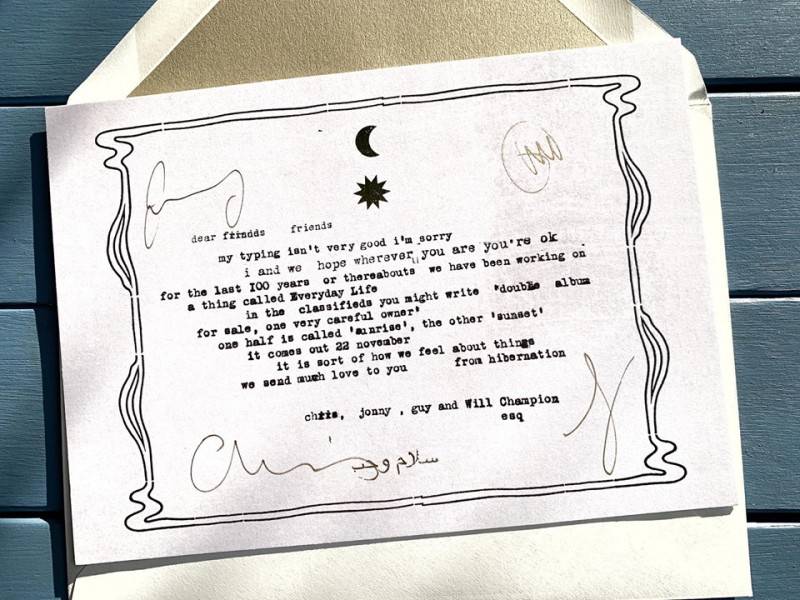 dear frindds friends
my typing isn't very good i'm sorry
i and we hope wherever you are you're ok
for the last I00 years or thereabouts we have been working on
a thing called Everyday Life
in the classifieds you might write 'double album
for sale, one very careful owner'
one half is called 'sunrise', the other 'sunset'
it comes out 22 november
it is sort of how we feel about things
we send much love to you from hibernation
chris, jonny , guy and Will Champion
esq
سلام و حب